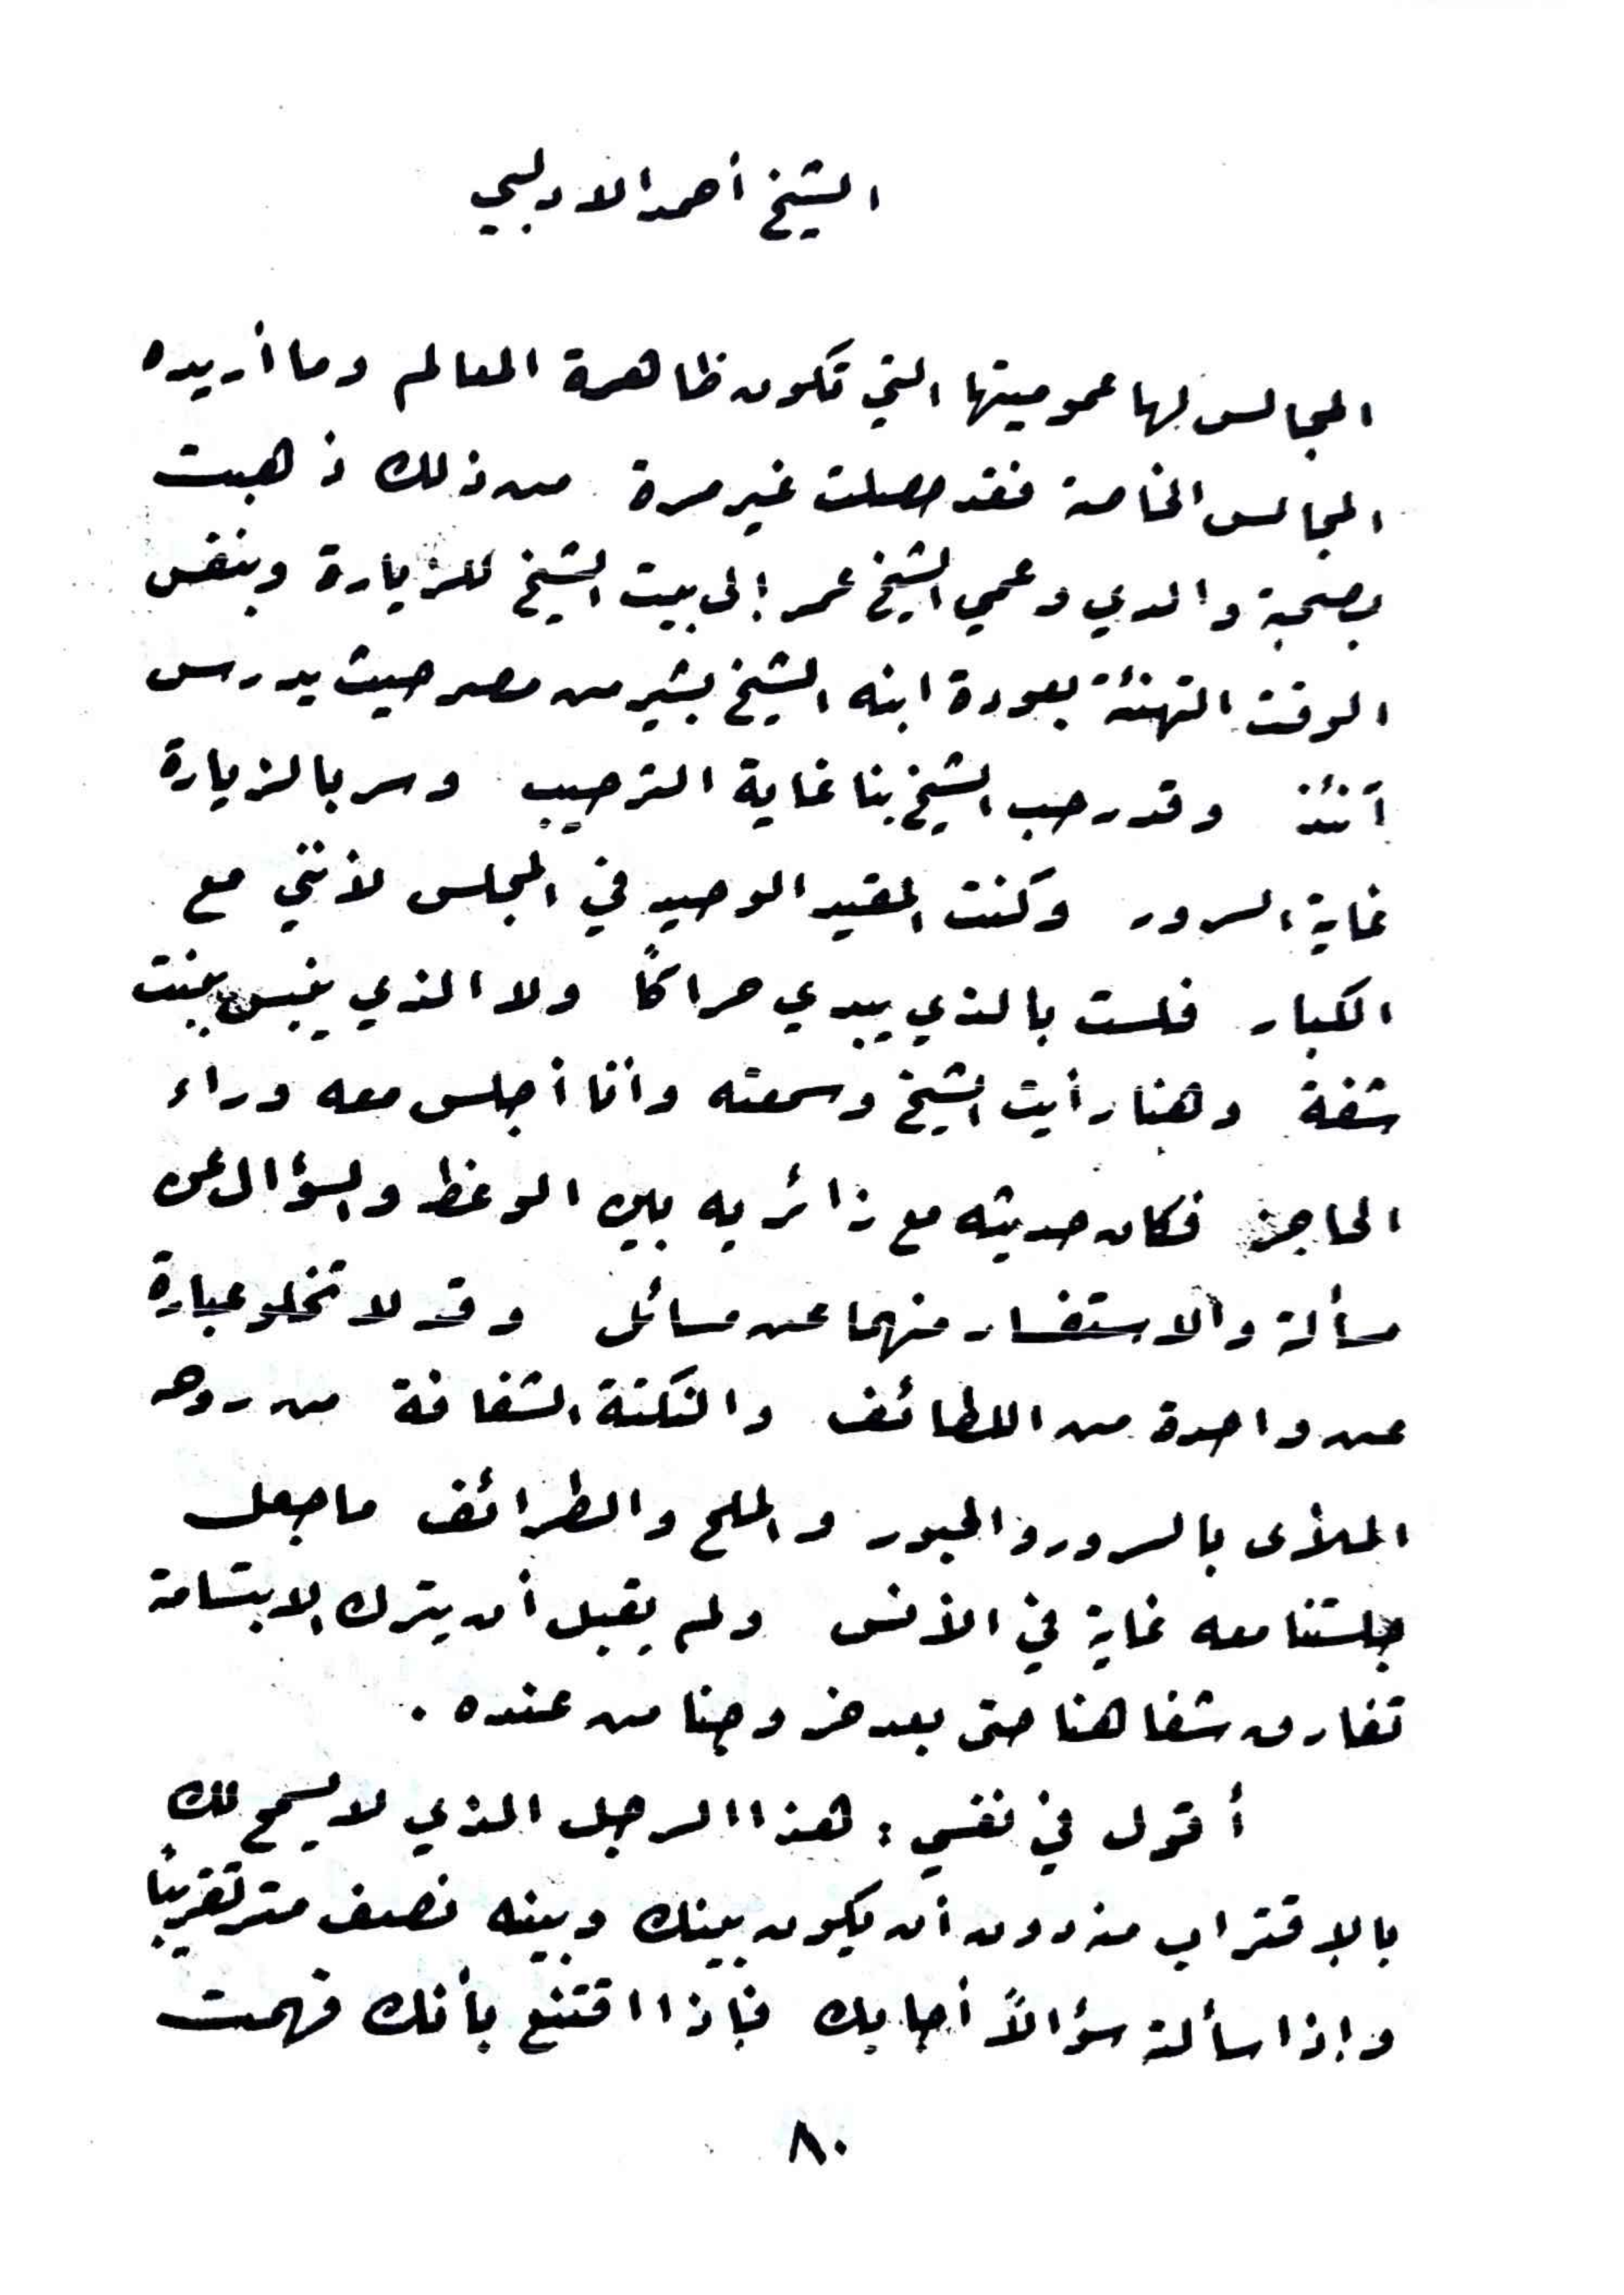 الشيخ أحمد الادلبي
المجالس لها عموميتها التي تكون ظاهرة المعالم وما أريده
المجالس الخاصة فقد حصلت غير مرة من ذلك ذهبت
بصحبة والدي وعمي الشيخ عمر إلى بيت الشيخ للزيارة وبنفس
الوقت التهنئة بعودة ابنه الشيخ بشير من مصر حيث يدرس
آنئذ وقد رحب الشيخ بنا غاية الترحيب وسر بالزيارة
غاية السرور وكنت المقيد الوحيد في المجلس لأنني مع
الكبار فلست بالذي يبدي حراكاً ولا الذي ينبس ببنت
شفة وهنا رأيت الشيخ وسمعته وأنا أجلس معه وراء
الحاجز فكان حديثه مع زائريه بين الوعظ والسؤال عن
مسألة والاستفسار منهما عن مسائل وقد لا تخلو عبارة
عن واحدة من اللطائف والنكتة الشفافة من روحه
الملأى بالسرور والحبور والملح والطرائف ما جعل
جلستنا معه غاية في الأنس ولم يقبل أن يترك الابتسامة
تفارق شفاهنا حتى بعد خروجنا من عنده .
أقول في نفسي : هذا الرجل الذي لا يسمح لك
بالاقتراب منه دون أن يكون بينك وبينه نصف متر تقريباً
وإذا سألته سؤالاً أجابك فإذا اقتنع بأنك فهمت
٨٠